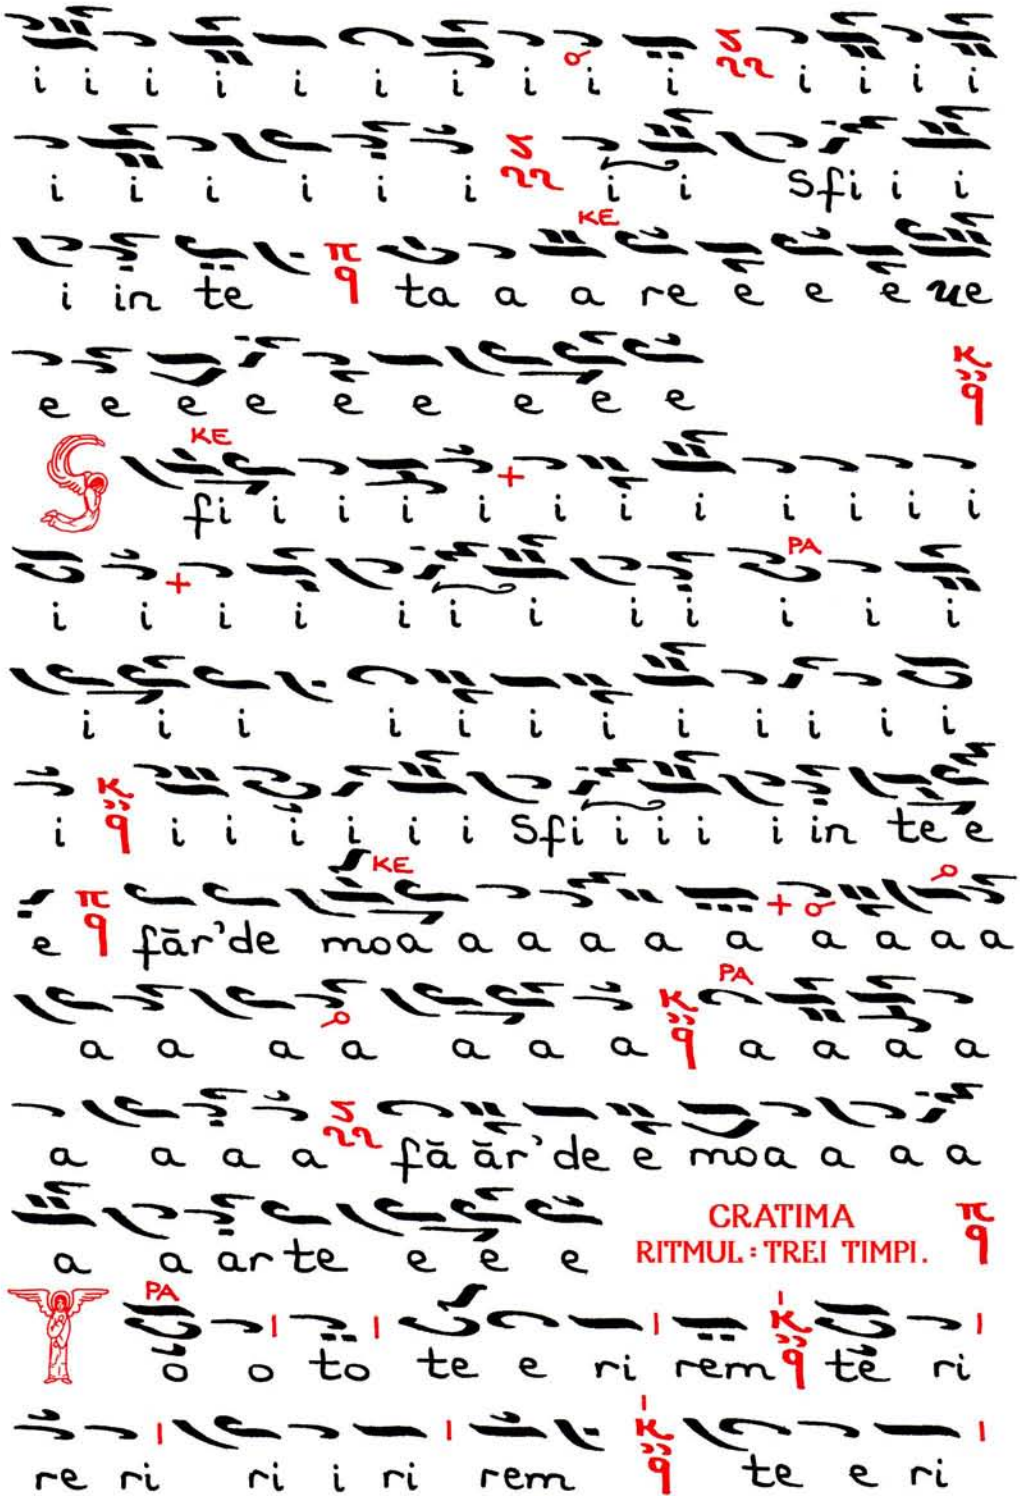 i i i i i i i i i i i i i i
i i i i i i i i Sfi i i
KE
i in te ta a a re e e e ue
e e e e e e e e e
KE
S fi i i i i i i i i i i i
PA
i i i i i i i i i i i i
i i i i i i i i i i i i
i i i i i i i Sfi i i i i in te e
KE
e făr'de moa a a a a a a a a a
PA
a a a a a a a a a a a
a a a a fă ăr'de e moa a a a
a a ar te e e e CRATIMA
RITMUL : TREI TIMPI.
PA
T o o to te e ri rem te ri
re ri ri i ri rem te e ri